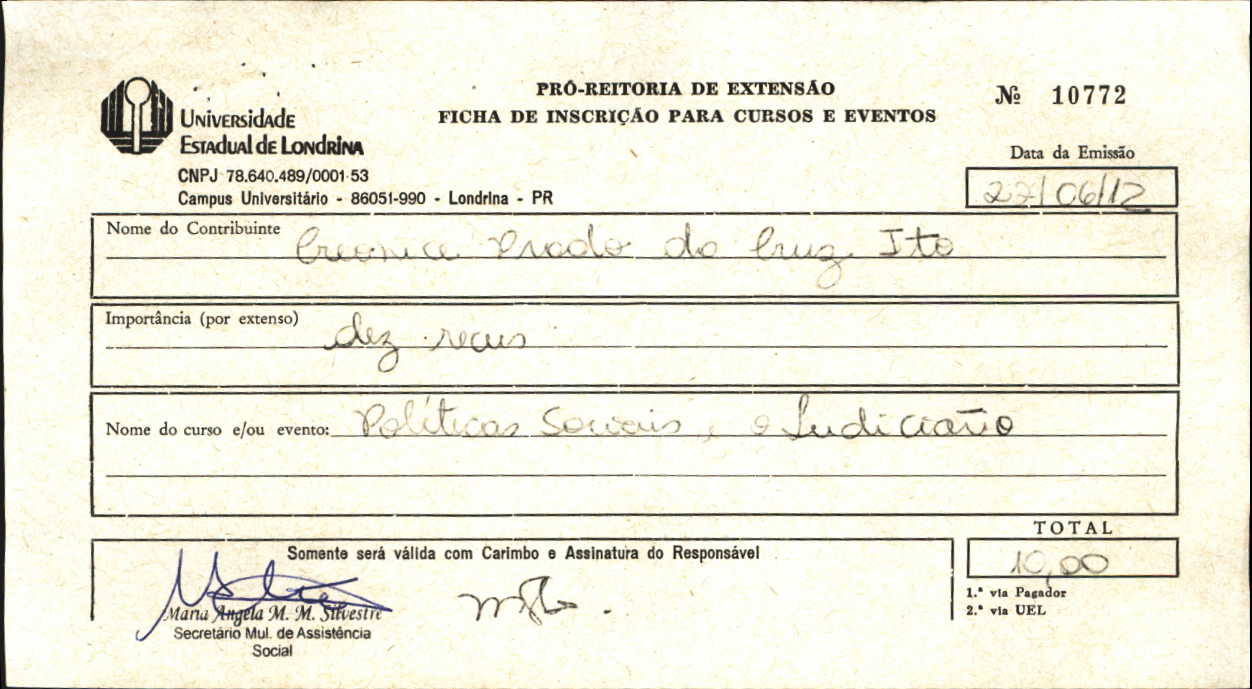 PRÓ-REITORIA DE EXTENSÃO
FICHA DE INSCRIÇÃO PARA CURSOS E EVENTOS
Nº 10772
UNIVERSIDADE
ESTADUAL DE LONDRINA
CNPJ 78.640.489/0001-53
Campus Universitário - 86051-990 - Londrina - PR
Data da Emissão
27/06/12
Nome do Contribuinte Creonice Prado da Cruz Ito
Importância (por extenso) dez reais
Nome do curso e/ou evento: Políticas Sociais, o Judiciário
Somente será válida com Carimbo e Assinatura do Responsável
TOTAL
10,00
1.ª via Pagador
2.ª via UEL
Maria Angela M. M. Silvestre
Secretário Mul. de Assistência
Social